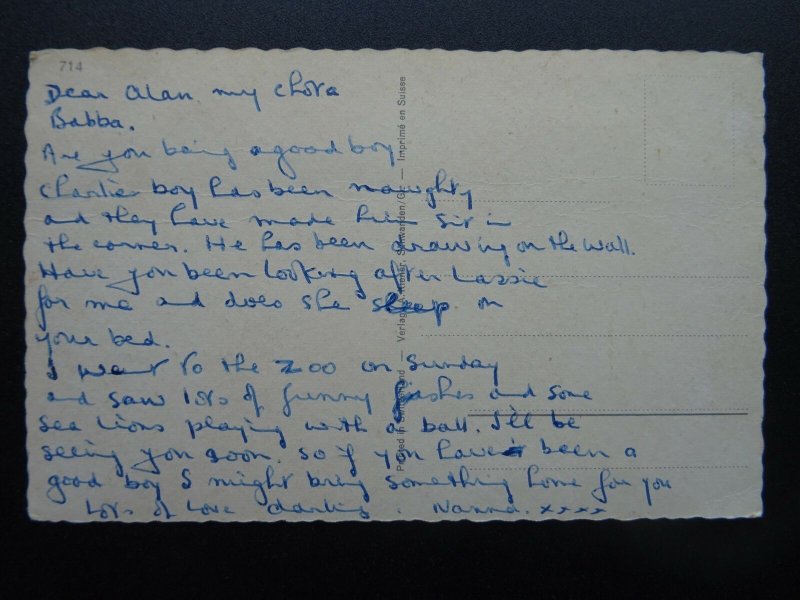 714
Dear Alan my chota
Babba.
Are you being a good boy
Charlie boy has been naughty
and they have made him sit in
the corner. He has been drawing on the wall.
Have you been looking after Lassie
for me and does she sleep on
your bed.
I went to the Zoo on Sunday
and saw lots of funny fishes and some
sea lions playing with a ball. I'll be
seeing you soon. so if you have been a
good boy I might bring something home for you
Lots of Love darling. Nanna. xxxx
Printed in Switzerland — Verlag — Imprimé en Suisse